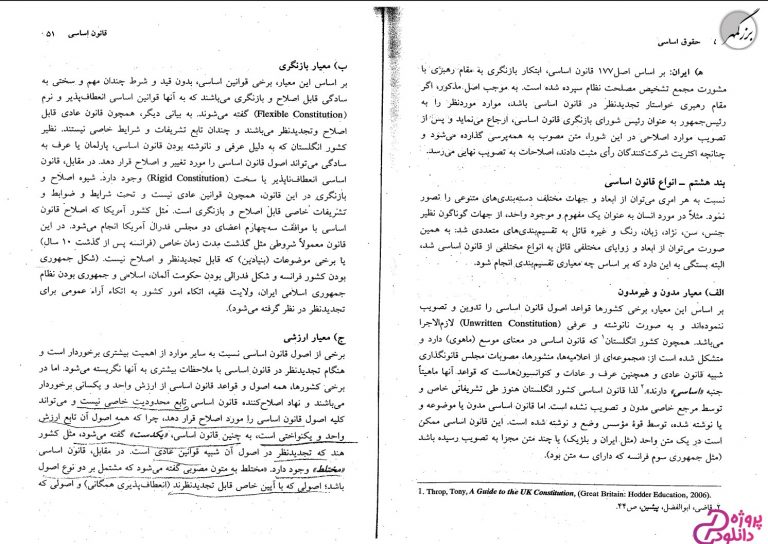 حقوق اساسی
ه) ایران: بر اساس اصل ۱۷۷ قانون اساسی، ابتکار بازنگری به مقام رهبری با
مشورت مجمع تشخیص مصلحت نظام سپرده شده است. به موجب اصل مذکور، اگر
مقام رهبری خواستار تجدیدنظر در قانون اساسی باشد، موارد موردنظر را به
رئیس‌جمهور به عنوان رئیس شورای بازنگری قانون اساسی، ارجاع می‌نماید و پس از
تصویب موارد اصلاحی در این شورا، متن مصوب به همه‌پرسی گذارده می‌شود و
چنانچه اکثریت شرکت‌کنندگان رأی مثبت دادند، اصلاحات به تصویب نهایی می‌رسد.
بند هشتم – انواع قانون اساسی
نسبت به هر امری می‌توان از ابعاد و جهات مختلف دسته‌بندی‌های متنوعی را تصور
نمود. مثلاً در مورد انسان به عنوان یک مفهوم و موجود واحد، از جهات گوناگون نظیر
جنس، سن، نژاد، زبان، رنگ و غیره قائل به تقسیم‌بندی‌های متعددی شد: به همین
صورت می‌توان از ابعاد و زوایای مختلفی قائل به انواع مختلفی از قانون اساسی شد،
البته بستگی به این دارد که بر اساس چه معیاری تقسیم‌بندی انجام شود.
الف) معیار مدون و غیرمدون
بر اساس این معیار، برخی کشورها قواعد اصول قانون اساسی را تدوین و تصویب
ننموده‌اند و به صورت نانوشته و عرفی (Unwritten Constitution) لازم‌الاجرا
می‌باشد. همچون کشور انگلستان¹ که قانون اساسی در معنای موسع (ماهوی) دارد و
متشکل شده است از: «مجموعه‌ای از اعلامیه‌ها، منشورها، مصوبات مجلس قانونگذاری
شبیه قانون عادی و همچنین عرف و عادات و کنوانسیون‌هاست که قواعد آنها ماهیتاً
جنبه «اساسی» دارند».² لذا قانون اساسی کشور انگلستان هنوز طی تشریفاتی خاص و
توسط مرجع خاصی مدون و تصویب نشده است. اما قانون اساسی مدون یا موضوعه و
یا نوشته شده، توسط قوۀ مؤسس وضع و نوشته شده است. این قانون اساسی ممکن
است در یک متن واحد (مثل ایران و بلژیک) یا چند متن مجزا به تصویب رسیده باشد
(مثل جمهوری سوم فرانسه که دارای سه متن بود).
1. Throp, Tony, A Guide to the UK Constitution, (Great Britain: Hodder Education, 2006).
۲. قاضی، ابوالفضل، پیشین، ص۴۴.
قانون اساسی ۵۱
ب) معیار بازنگری
بر اساس این معیار، برخی قوانین اساسی، بدون قید و شرط چندان مهم و سختی به
سادگی قابل اصلاح و بازنگری می‌باشند که به آنها قوانین اساسی انعطاف‌پذیر و نرم
(Flexible Constitution) گفته می‌شوند. به بیانی دیگر، همچون قانون عادی قابل
اصلاح وتجدیدنظر می‌باشند و چندان تابع تشریفات و شرایط خاصی نیستند. نظیر
کشور انگلستان که به دلیل عرفی و نانوشته بودن قانون اساسی، پارلمان یا عرف به
سادگی می‌تواند اصول قانون اساسی را مورد تغییر و اصلاح قرار دهد. در مقابل، قانون
اساسی انعطاف‌ناپذیر یا سخت (Rigid Constitution) وجود دارد. شیوه اصلاح و
بازنگری در این قانون، همچون قوانین عادی نیست و تحت شرایط و ضوابط و
تشریفات خاصی قابل اصلاح و بازنگری است. مثل کشور آمریکا که اصلاح قانون
اساسی با موافقت سه‌چهارم اعضای دو مجلس فدرال آمریکا انجام می‌شود. در این
قانون معمولاً شروطی مثل گذشت مدت زمان خاص (فرانسه پس از گذشت ۱۰ سال)
یا برخی موضوعات (بنیادین) که قابل تجدیدنظر و اصلاح نیست. (شکل جمهوری
بودن کشور فرانسه و شکل فدرالی بودن حکومت آلمان، اسلامی و جمهوری بودن نظام
جمهوری اسلامی ایران، ولایت فقیه، اتکاء امور کشور به اتکاء آراء عمومی برای
تجدیدنظر در نظر گرفته می‌شود).
ج) معیار ارزشی
برخی از اصول قانون اساسی نسبت به سایر موارد از اهمیت بیشتری برخوردار است و
هنگام تجدیدنظر در قانون اساسی با ملاحظات بیشتری به آنها نگریسته می‌شود. اما در
برخی کشورها، همه اصول و قواعد قانون اساسی از ارزش واحد و یکسانی برخوردار
می‌باشند و نهاد اصلاح‌کننده قانون اساسی تابع محدودیت خاصی نیست و می‌تواند
کلیه اصول قانون اساسی را مورد اصلاح قرار دهد، چرا که همه اصول آن تابع ارزش
واحد و یکنواختی است، به چنین قانون اساسی، «یکدست» گفته می‌شود، مثل کشور
هند که تجدیدنظر در اصول آن شبیه قوانین عادی است. در مقابل، قانون اساسی
«مختلط» وجود دارد. «مختلط به متون مصوبی گفته می‌شود که مشتمل بر دو نوع اصول
باشد؛ اصولی که با آیین خاص قابل تجدیدنظرند (انعطاف‌پذیری همگانی) و اصولی که
پروژه
دانلود